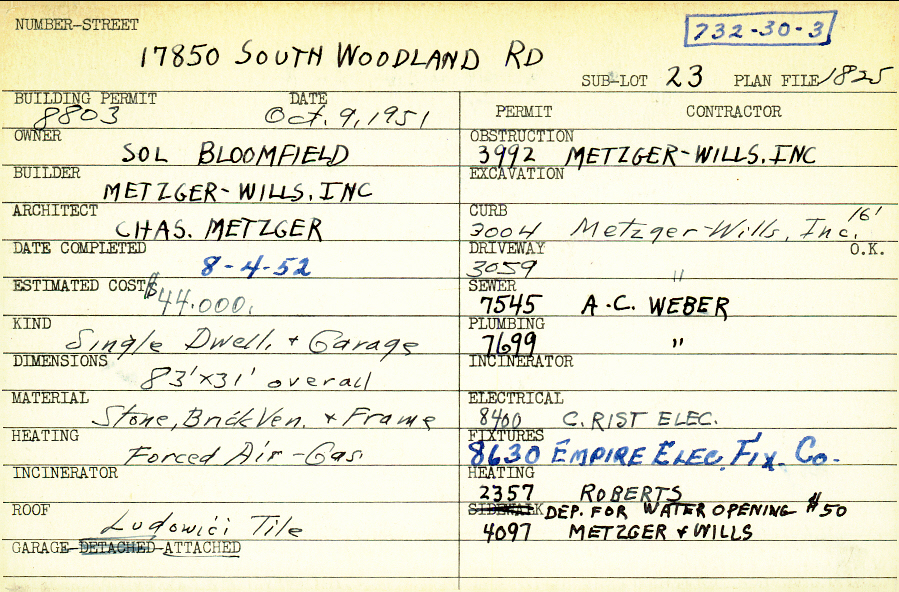 NUMBER-STREET
732-30-3
17850 SOUTH WOODLAND RD
SUB-LOT 23 PLAN FILE 1825
BUILDING PERMIT DATE
8803 Oct. 9, 1951
OWNER
SOL BLOOMFIELD
BUILDER
METZGER-WILLS, INC
ARCHITECT
CHAS. METZGER
DATE COMPLETED
8-4-52
ESTIMATED COST
$44.000.
KIND
Single Dwell. + Garage
DIMENSIONS
83'x31' overall
MATERIAL
Stone, Brick Ven. + Frame
HEATING
Forced Air-Gas
INCINERATOR
ROOF
Ludowici Tile
GARAGE-DETACHED-ATTACHED
PERMIT CONTRACTOR
OBSTRUCTION
3992 METZGER-WILLS, INC
EXCAVATION
CURB 16'
3004 Metzger-Wills, Inc.
DRIVEWAY O.K.
3059 "
SEWER
7545 A.C. WEBER
PLUMBING
7699 "
INCINERATOR
ELECTRICAL
8400 C. RIST ELEC.
FIXTURES
8630 EMPIRE ELEC. FIX. CO.
HEATING
2357 ROBERTS
SIDEWALK DEP. FOR WATER OPENING $50
4097 METZGER + WILLS